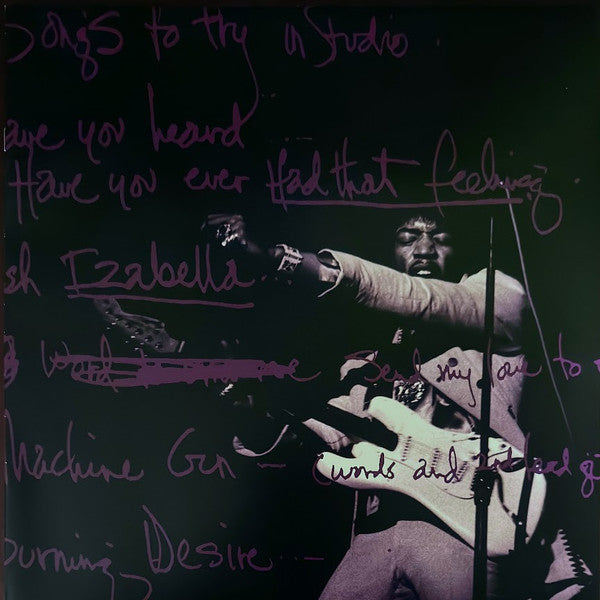 Songs to try in Studio
have you heard
Have you ever Had that feeling
sh Izabella
Send my love to
Machine Gun – (words and 2nd lead g
Burning Desire –